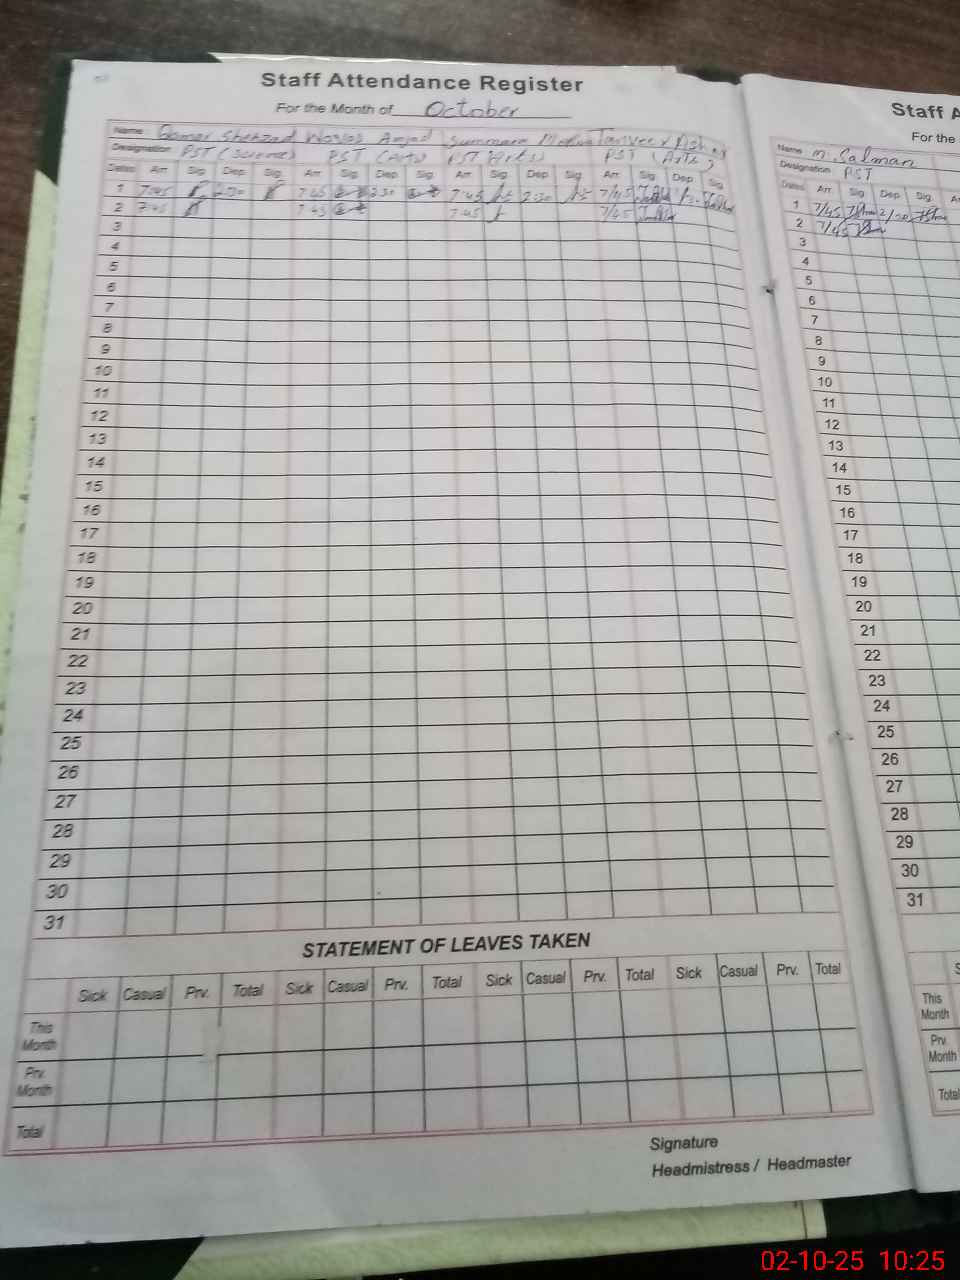 Staff Attendance Register
For the Month of October
Name Qamar Shehzad Waqas Amjad Summara Tanveer
Designation PST (Science) PST (Arts) PST (Arts) PST (Arts)
Dates Arr Sig. Dep Sig. Arr Sig. Dep Sig. Arr Sig. Dep Sig. Arr Sig. Dep Sig.
1 7:45 2:30 7:45 2:30 7:45 2:30 7/45
2 7:45 7:45 7:45 7/45
3
4
5
6
7
8
9
10
11
12
13
14
15
16
17
18
19
20
21
22
23
24
25
26
27
28
29
30
31
STATEMENT OF LEAVES TAKEN
Sick Casual Prv. Total Sick Casual Prv. Total Sick Casual Prv. Total Sick Casual Prv. Total
This Month
Prv. Month
Total
Signature
Headmistress / Headmaster
Staff A
For the
Name M. Salman
Designation PST
Dates Arr Sig. Dep Sig. Ar
1 7/45 2/30
2 7/45
3
4
5
6
7
8
9
10
11
12
13
14
15
16
17
18
19
20
21
22
23
24
25
26
27
28
29
30
31
S
This Month
Prv. Month
Total
02-10-25 10:25